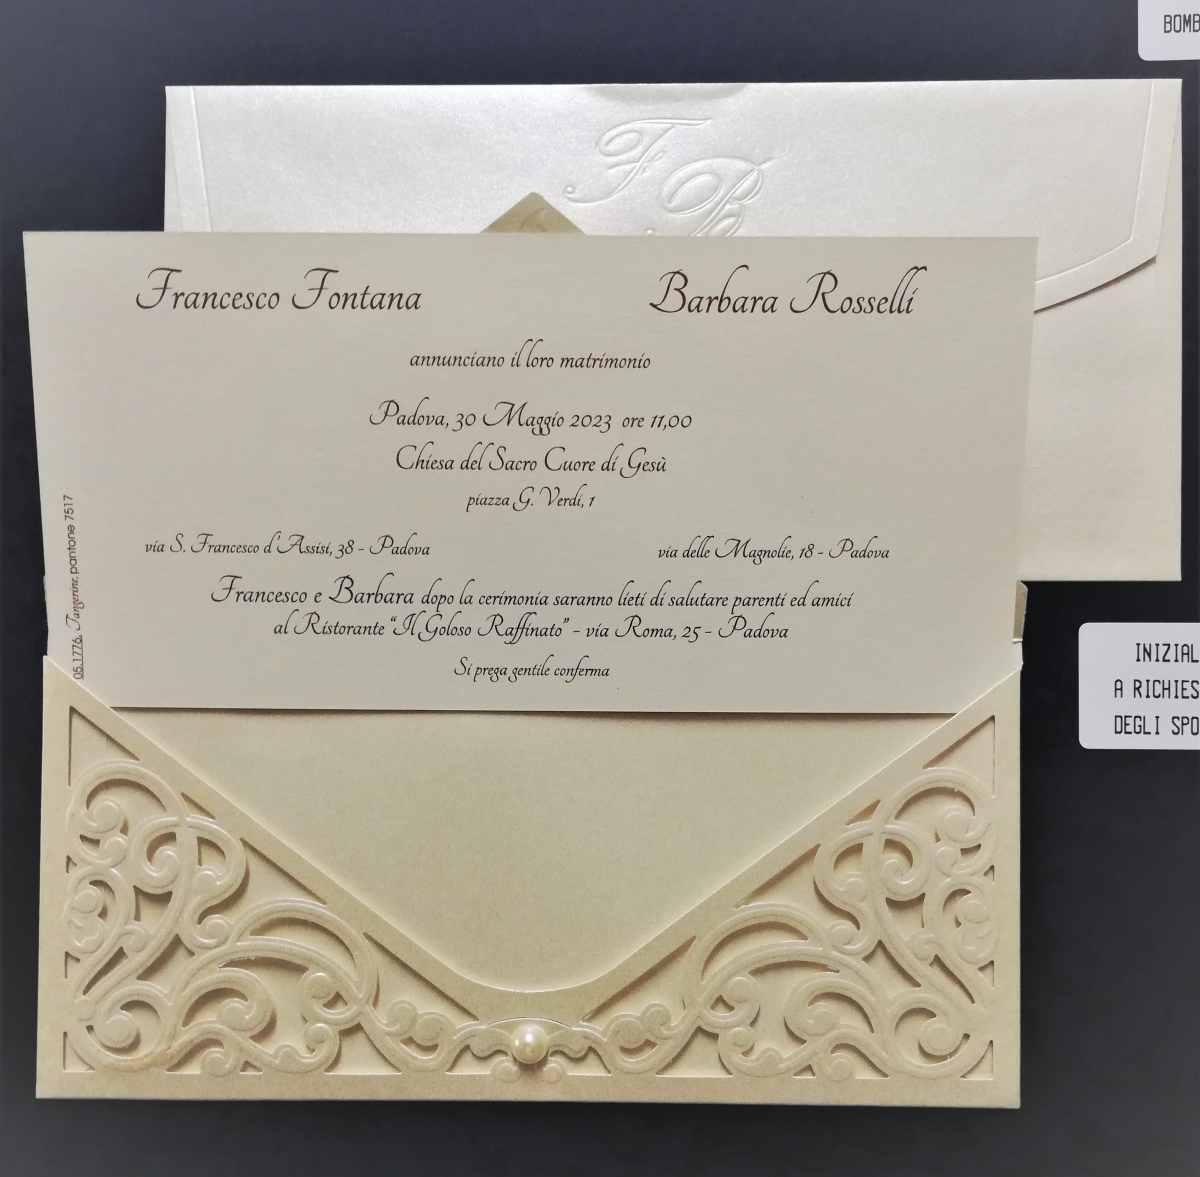 BOMB
F B
Francesco Fontana Barbara Rosselli
annunciano il loro matrimonio
Padova, 30 Maggio 2023 ore 11,00
Chiesa del Sacro Cuore di Gesù
piazza G. Verdi, 1
via S. Francesco d'Assisi, 38 - Padova via delle Magnolie, 18 - Padova
Francesco e Barbara dopo la cerimonia saranno lieti di salutare parenti ed amici
al Ristorante “Il Goloso Raffinato” - via Roma, 25 - Padova
Si prega gentile conferma
05.1776, Tangerine, pantone 7517
INIZIAL
A RICHIES
DEGLI SPO